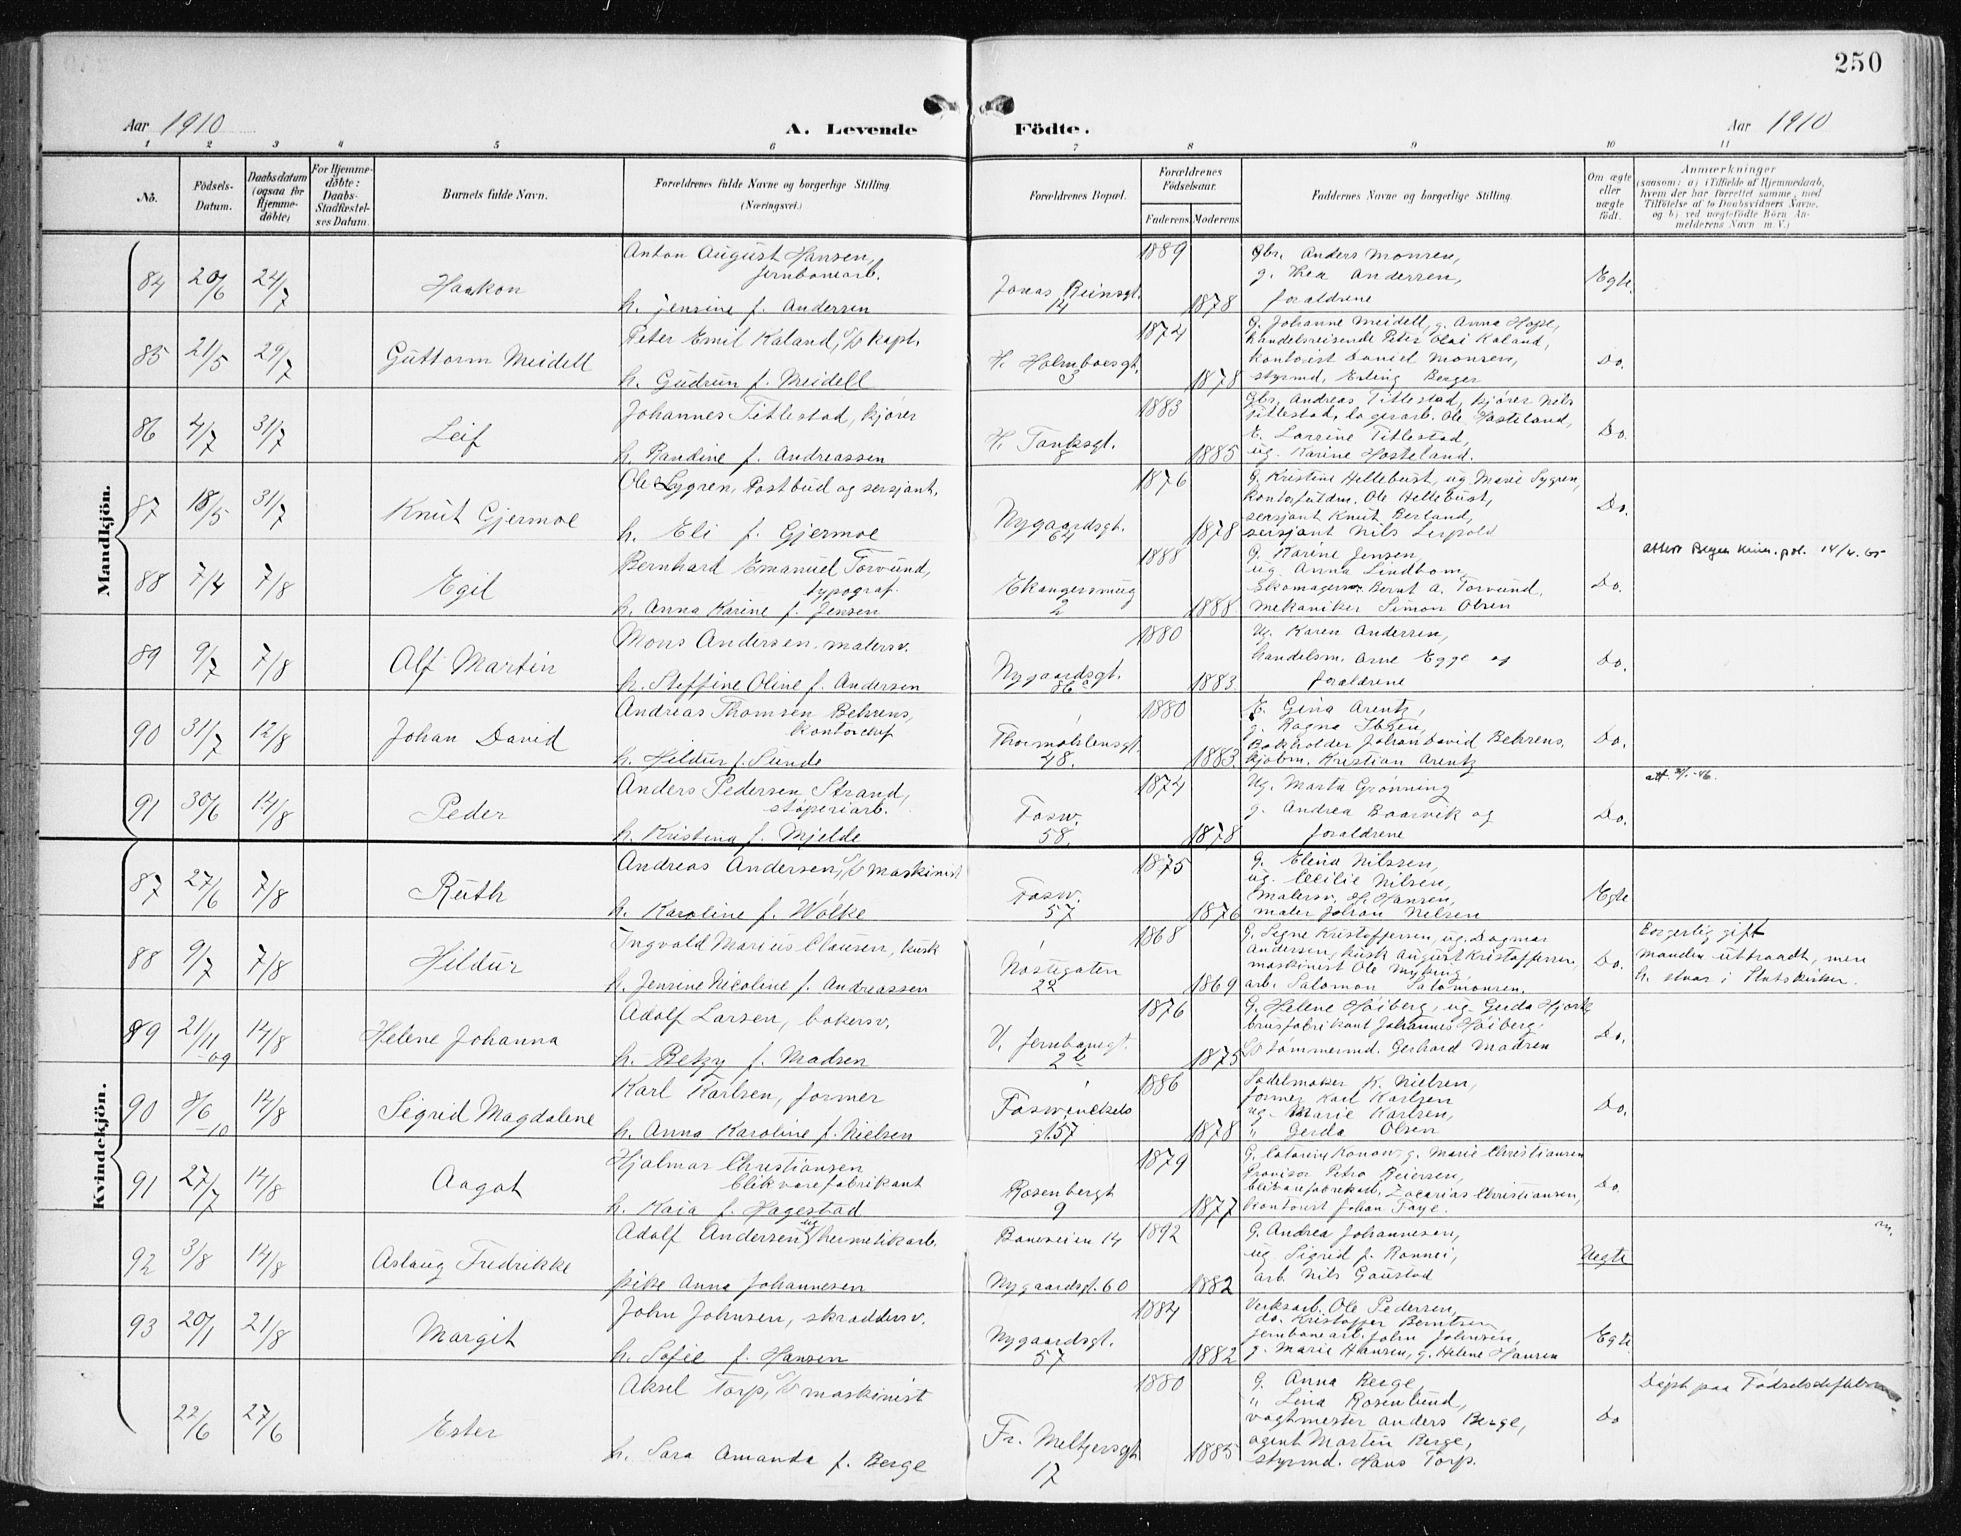 250
Aar 1910
A. Levende
Födte.
Aar 1910
1 2 3 4 5 6 7 8 9 10 11
No.
Födsels-
Datum.
Daabsdatum
(ogsaa for
Hjemme-
döbte)
For Hjemme-
döbte:
Daabs-
Stadfæstel-
ses Datum.
Barnets fulde Navn.
Forældrenes fulde Navne og borgerlige Stilling.
(Næringsvei.)
Forældrenes Bopæl.
Forældrenes
Födselsaar.
Faderens Moderens
Faddernes Navne og borgerlige Stilling.
Om ægte
eller
uægte
födt.
Anmærkninger
(saasom: a) i Tilfælde af Hjemmedaab,
hvem der har forrettet samme, med
Tilföielse af to Daabsvidners Navne,
og b) ved uægtefödte Börn An-
melderens Navn m. V.)
Mandkjön.
84 20/6 24/7 Haakon
Anton August Hansen,
jernbanearb.
h. Jensine f. Andersen
Jonas Reinsgt.
14
1889
1878
Gbr. Anders Monsen,
g. Thea Andersen,
forældrene
Egte.
85 21/5 29/7 Guttorm Meidell
Peter Emil Kaland, kapt.
h. Gudrun f. Meidell
H. Holmboesgt.
3
1874
1878
G. Johanne Meidell, g. Anna Hope,
handelsreisende Peter Olai Kaland,
kontorist Daniel Monsen,
styrmd. Erling Berger
Do.
86 4/7 31/7 Leif
Johannes Titlestad, kjører
h. Randine f. Andreassen
H. Tanksgt.
1883
1885
Gbr. Andreas Titlestad, kjører Nils
Titlestad, lagerarb. Ole Hosteland,
E. Lorrine Titlestad,
ug. Karine Hosteland.
Do.
87 18/5 31/7 Knut Gjermoe
Ole Sygren, Postbud og sersjant.
h. Eli f. Gjermoe
Nygaardsgt.
64
1876
1878
G. Kristine Hellebust, ug. Marie Sygren,
kontorfuldm. Ole Hellebust,
sersjant Knut Berland,
sersjant Nils
Do.
88 7/4 7/8 Egil
Bernhard Emanuel Torvund,
typograf.
h. Anna Karine f. Jensen
Ekangersmug
2
1888
1888
G. Karine Jensen,
ug. Anna Lindbom,
Skomagersv. Bernt A. Torvund,
mekaniker Simon Olsen
Do.
89 9/7 7/8 Alf Martin
Mons Andersen, malersv.
h. Steffine Oline f. Andersen
Nygaardsgt.
86a
1880
1883
Ug. Karen Andersen,
handelsm. Arne Egge og
forældrene
Do.
90 31/7 12/8 Johan David
Andreas Thomsen Behrens,
kontorchef
h. Hildur f. Sunde
Thormøhlensgt.
48.
1880
1883
E. Gina Arentz,
g. Ragna Ibsen,
Bokholder Johan David Behrens,
kjøbm. Kristian Arentz
Do.
91 30/6 14/8 Peder
Anders Pedersen Strand,
støperiarb.
h. Kristina f. Mjelde
Fosw.
58.
1874
1878
Ug. Marta Grønning
g. Andrea Baarvik og
forældrene
Do.
Kvindekjön.
87 27/6 7/8 Ruth
Andreas Andersen, maskinist
h. Karoline f. Wølke
Fosw.
57
1875
1876
G. Elina Nilssen,
ug. Cecilie Nilsen,
Malersv. H. Hansen,
maler Johan Nilsen
Egte
88 9/7 7/8 Hildur
Ingvald Marius Clausen, kusk
h. Jensine Nicoline f. Andreassen
Nøstegaten
22
1868
1869
G. Signe Kristoffersen, ug. Dagmar
Andersen, kusk August Kristoffersen,
maskinist Ole Myking,
arb. Salomon Salomonsen.
Do.
Borgerlig gift
Manden uttraadt, men
h. staar i Statskirken.
89 21/11-09 14/8 Helene Johanna
Adolf Larsen, bakersv.
h. Betzy f. Madsen
V. Jernbanegt.
2b
1876
1875
G. Helene Høiberg, ug. Gerda Hjorth
brusfabrikant Johannes Høiberg,
tømmermd. Gerhard Madsen
Do.
90 8/6-10 14/8 Sigrid Magdalene
Karl Karlsen, former
h. Anna Karoline f. Nielsen
Foswinckels
gt.57
1886
1878
Sadelmaker K. Nielsen,
former Karl Karlsen
ug. Marie Karlsen,
" Gerda Olsen
Do.
91 27/7 14/8 Aagot
Hjalmar Christiansen
blikvarefabrikant
h. Kaia f. Hagestad
Rosenbergt
9
1879
1877
G. Catarine Konow, g. Marie Christiansen
Provisor Petra Reiersen,
blikvarefabrikant Zacarias Christiansen,
kontorist Johan Faye.
Do.
92 3/8 14/8 Aslaug Fredrikke
Adolf Andersen, ug hermetikarb.
pike Anna Johannesen
Baneveien 14
Nygaardsgt. 60
1892
1882
G. Andrea Johannesen,
ug. Sigrid f. Rannei,
arb. Nils Gaustad
Uegte
m.
93 20/1 21/8 Margit
John Johnsen, skræddersv.
h. Sofie f. Hansen
Nygaardsgt.
57
1884
1882
Verksarb. Ole Pedersen,
do. Kristoffer Berntsen,
jernbanearb. John Johnsen,
g. Marie Hansen, g. Helene Hansen
Egte
22/6 27/6 Ester
Aksel Torp, maskinist
h. Sara Amanda f. Berge
Fr. Meltzersgt.
17
1880
1885
G. Anna Berge,
" Lina Rosenlund,
vagtmester Anders Berge,
agent Martin Berge,
styrmd. Hans Torp.
Do
Døpt paa Fødselsstiftelsen